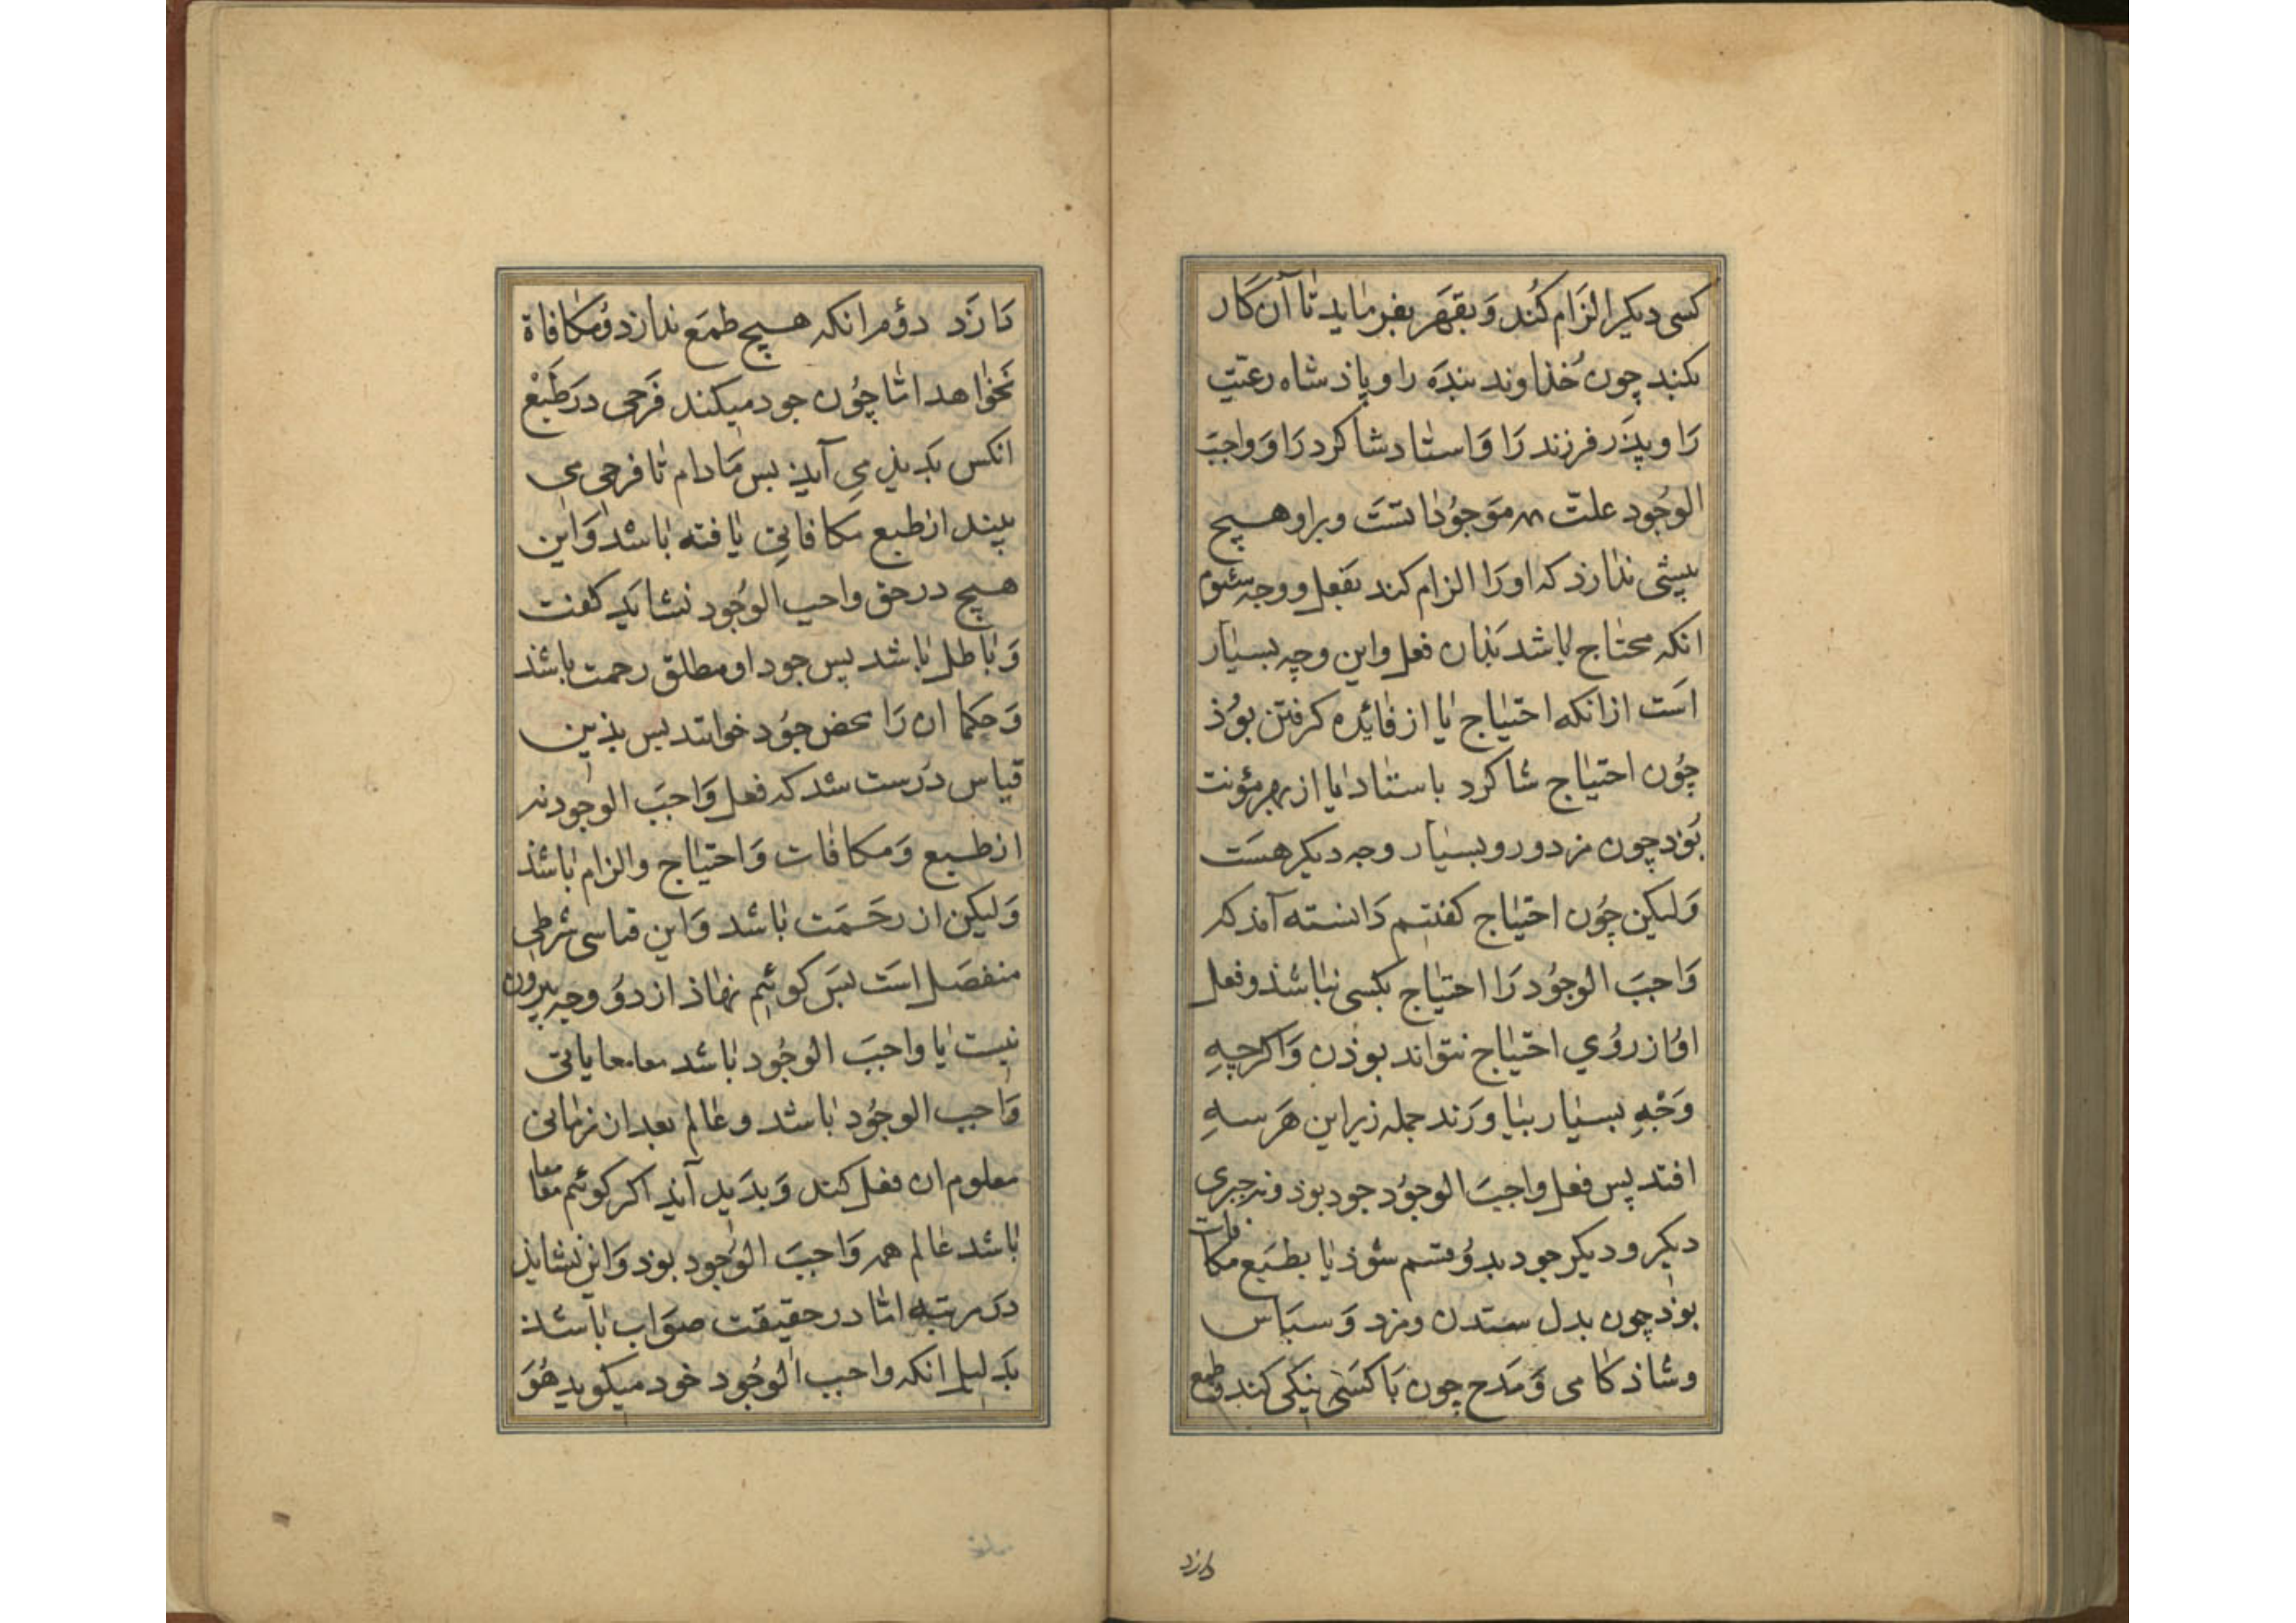 کسی دیکر الزام کُند وَ بقهَر بفرماید تا آن کار
بکند چون خُذاوند بندَه را و پاذشاه رعیّت
رَا و پذَر فرزند رَا وَ استاد شاکرد رَا وَ واجبَ
الوجُود علّت همه مَوجوُداتست و بر او هیچ
بیشی نذارذ که او رَا الزام کند بفعل و وجه سئوم
انکه محتاج باشد بَذان فعل و این وجه بسیار
اسَت از انکه احتیاج یا از فائده کرفتن بوُذ
چوُن احتیاج شاکرد باستاد یا از بهر مؤنت
بُوَذ چون مزدور و بسیار وجه دیکر هسَت
وَلیکن چوُن احتیاج کفتیم دَانسته آمذ که
وَاجبَ الوجوُد رَا احتیاج بکسی نباشذ و فعل
اوُ از روُي احتیاج نتواند بوذن وَ اکرچهِ
وَجْهِ بسیار بیاورَند جمله زیر این هَر سهِ
افتد پس فعل واجبَ الوجوُد جود بوذ و نه جبری
دیکر و دیکر جود بدوُ قسم شوذ یا بطبَع مکافات
بوَذ چون بدل ستدن و مزد وَ سبَاس
و شاذکامی وَ مَدح چون بَا کسَی نیکی کند وَ طمع
دارد
دَارَد دوُم انکه هیچ طمَع ندارد وُ مکافاة
نخَواهد امّا چوُن جود میکند فَرحی در طَبْع
انکس بَدیذ می آیذ بس مَادام تا فرحی می
بیند از طبع مکافاتی یافته باشد وَ این
هیچ در حق واجب الوجُود نشایَد کفت
وَ باطل باشد پس جود او مطلق رحمت باشذ
وَ حکما ان رَا محض جوُد خوانند بس بذین
قیاس دُرست شد که فعل وَاجبَ الوجود نه
از طبع وَ مکافات وَ احتیاج و الزام باشذ
وَلیکن از رحَمَت باشد وَ این قیاسی شرطی
منفصَل استَ بسَ کوئیم نهاذ از دوُ وجه بیرون
نیست یا واجبَ الوجُود باشد معا معا یا بی
وَاجب الوجوُد باشد و عالم بعد ان زمانی
معلوم ان فعل کند وَ بدَید آیذ اکر کوئیم معا معا
باشد عالم همه وَاجبَ الوُجود بوذ وَ این نشایذ
در مرتبه امّا در حقیقت صوَاب باشذ
بدَلیل انکه واجب الوجُود خود میکوید هُوَ